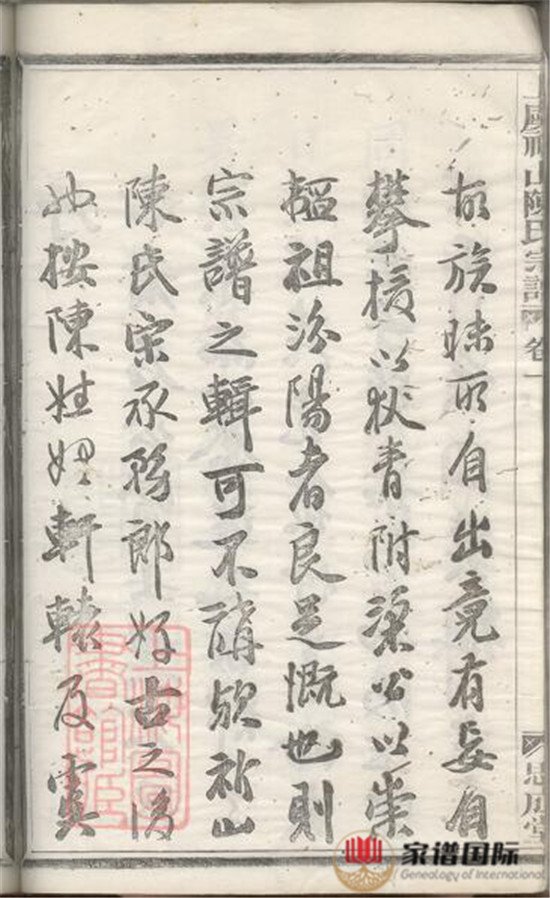 族昧所自出竟有妄自
攀援以狄青附梁公以崇
韜祖汾陽者良足慨也則
宗譜之輯可不講歟祈山
陳氏宋承務郎好古之後
也按陳姓始軒轅及虞
山陳氏宗譜 卷一
思成堂
家谱国际
Genealogy of International